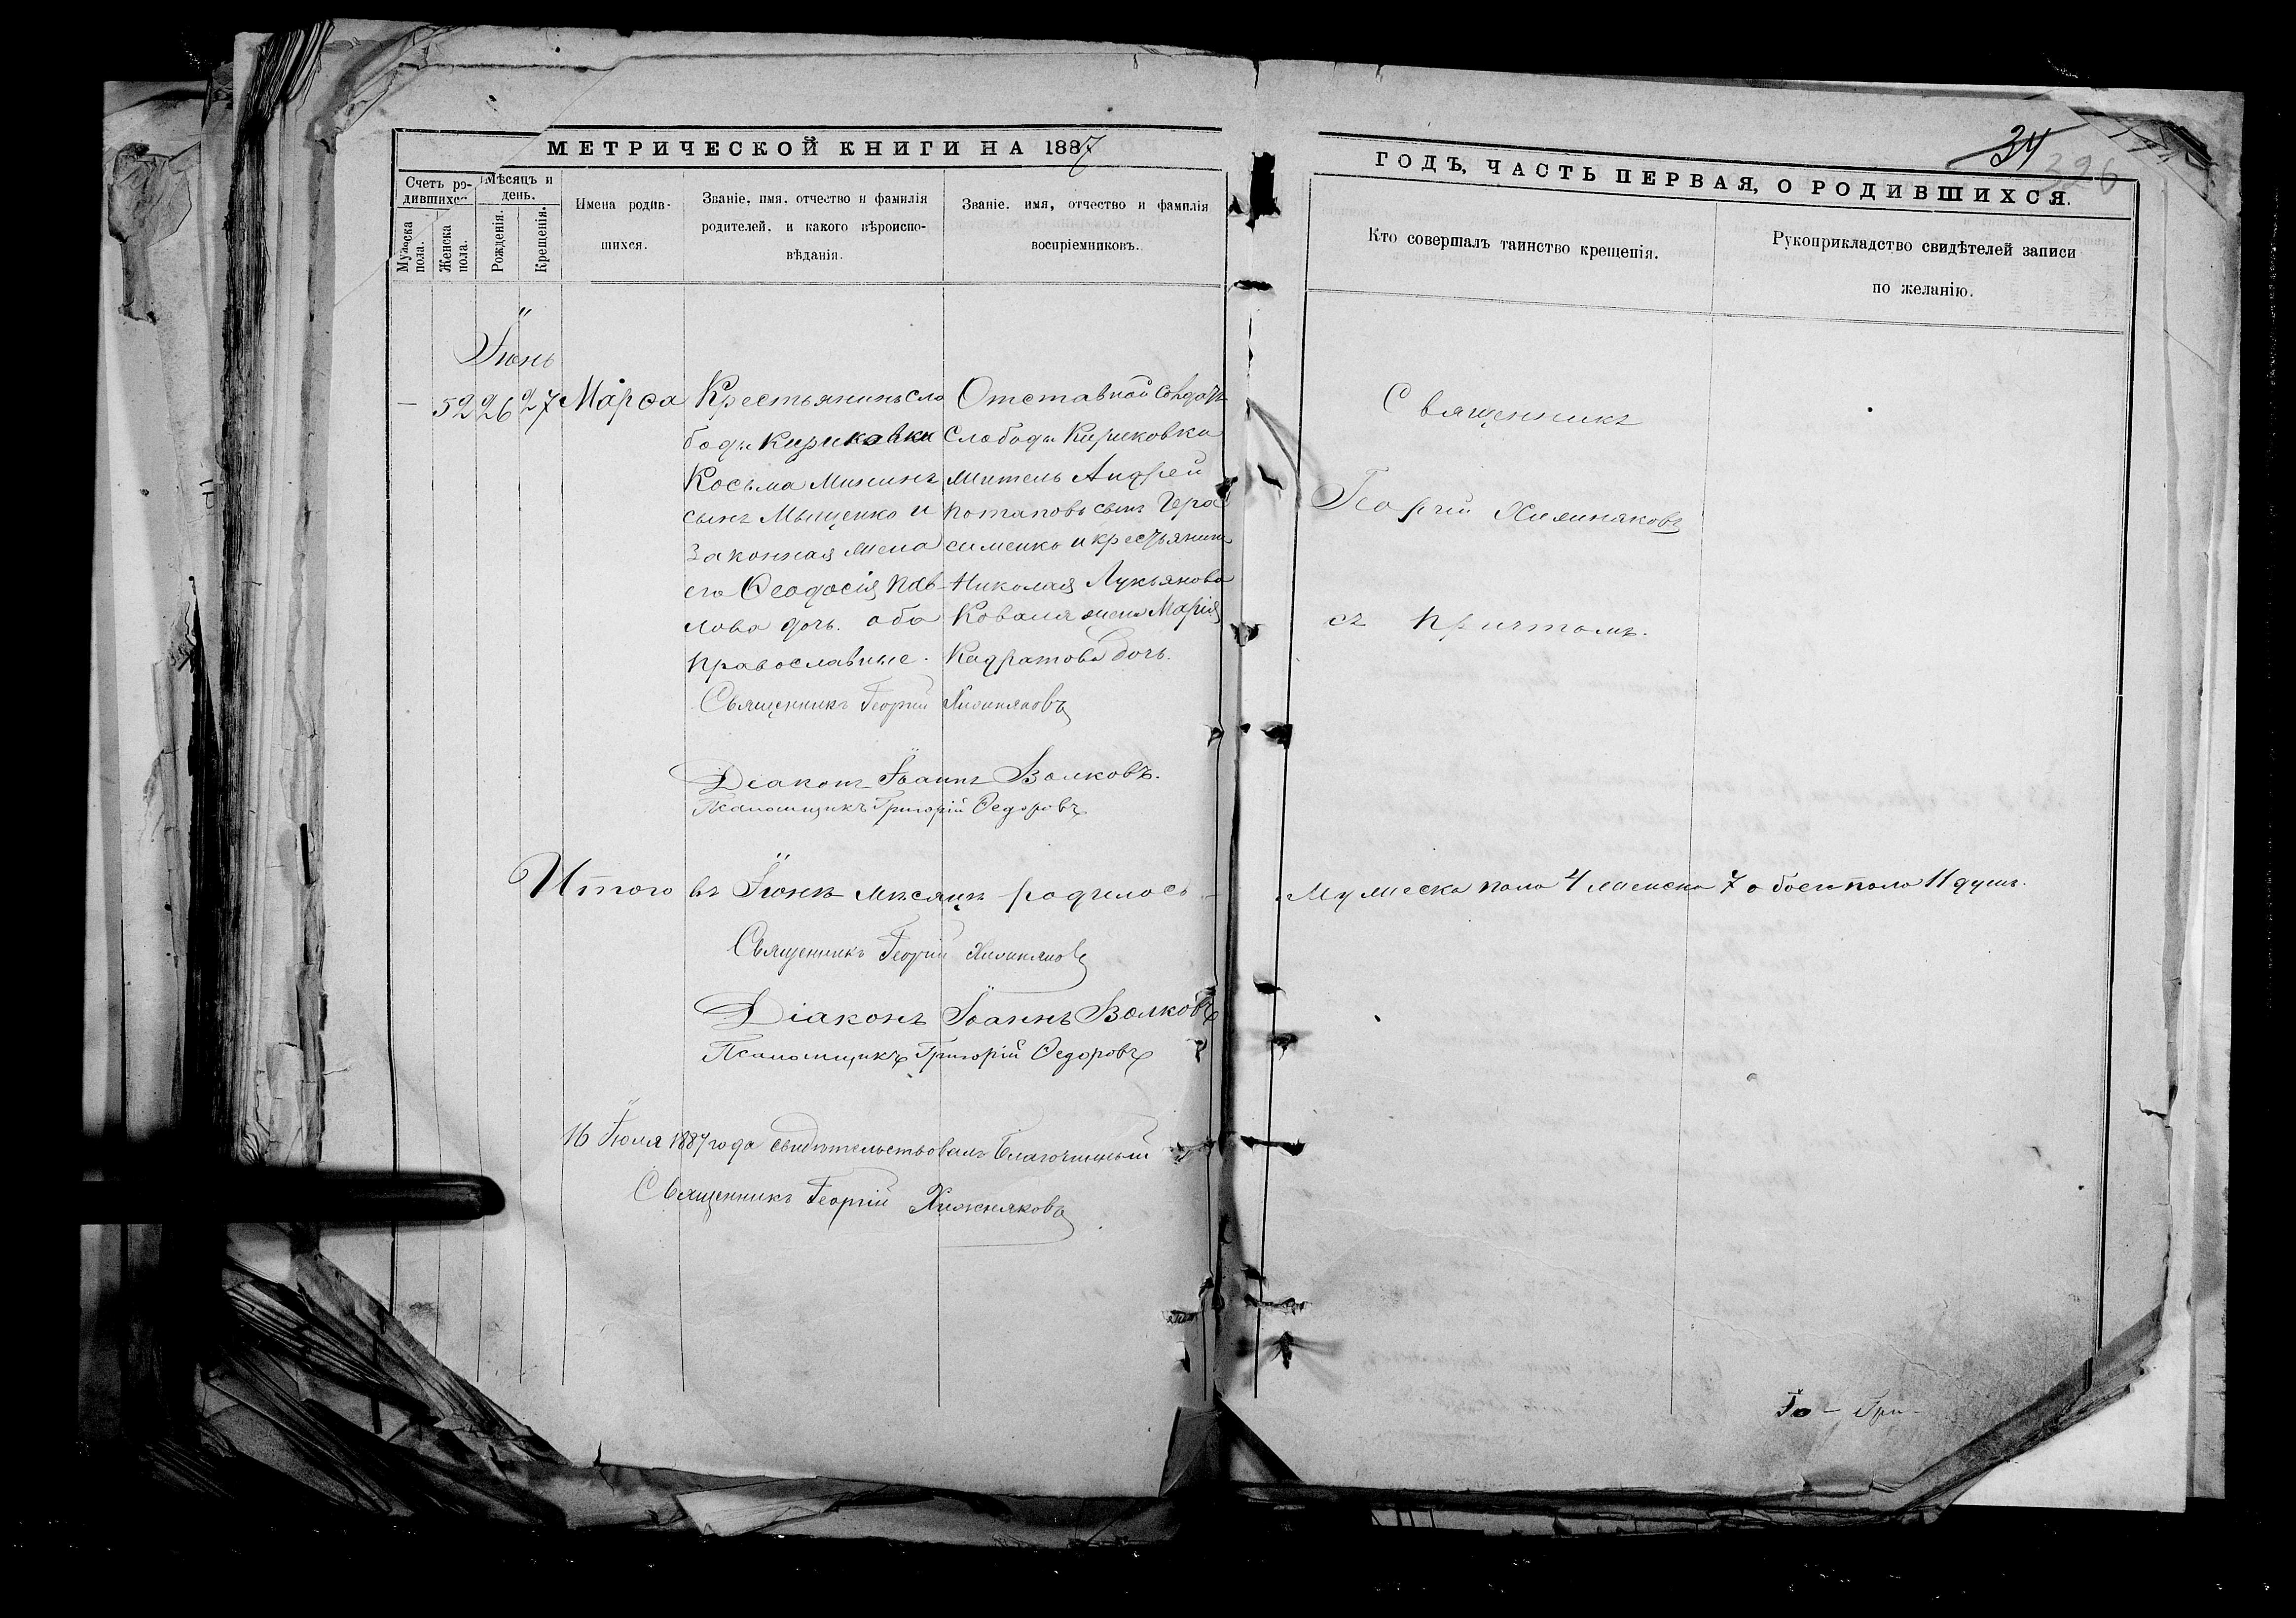 МЕТРИЧЕСКОЙ КНИГИ НА 1887
ГОДЪ, ЧАСТЬ ПЕРВАЯ, О РОДИВШИХСЯ.
34
326
Счетъ ро-
дившихся
Мужеска
пола.
Женска
пола.
Мѣсяцъ и
день.
Рожденія.
Крещенія.
Имена родив-
шихся.
Званіе, имя, отчество и фамилія
родителей, и какого вѣроиспо-
вѣданія.
Званіе, имя, отчество и фамилія
воспріемниковъ.
Кто совершалъ таинство крещенія.
Рукоприкладство свидѣтелей записи
по желанію.
Іюнь
— 52 26 27 Марѳа
Крестьянинъ сло
боды Кириковки
Косьма Мининъ
сынъ Мыщенко и
законная жена
его Ѳеодосія Пав-
лова дочь. оба
православные.
Отставной солдатъ
слободы Кириковки
житель Андрей
Потаповъ сынъ Гера
сименко и крестьянина
Николая Лукьянова
Коваля жена Марія
Кадратова дочь.
Священникъ
Георгій Хижняковъ
съ причтомъ.
Священникъ Георгій Хижняковъ
Діаконъ Іоаннъ Волковъ.
Псаломщикъ Григорій Ѳедоровъ
Итого въ Іюнѣ мѣсяцѣ родилось - мужеска пола 4 женска 7 обоего пола 11 душъ.
Священникъ Георгій Хижняковъ
Діаконъ Іоаннъ Волковъ
Псаломщикъ Григорій Ѳедоровъ
16 Іюля 1887 года свидѣтельствовалъ Благочинный
Священникъ Георгій Хижняковъ
Гри-